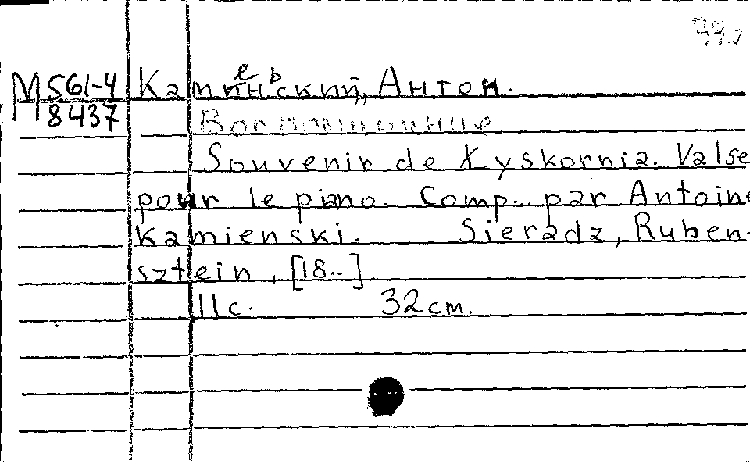 М 561-4
8437
Каменьский, Антон.
Воспоминание
Souvenir de Xyskornia. Valse
pour le piano. Comp. par Antoine
Kamienski. Sieradz, Ruben-
sztein, [18..]
11 с. 32 cm.